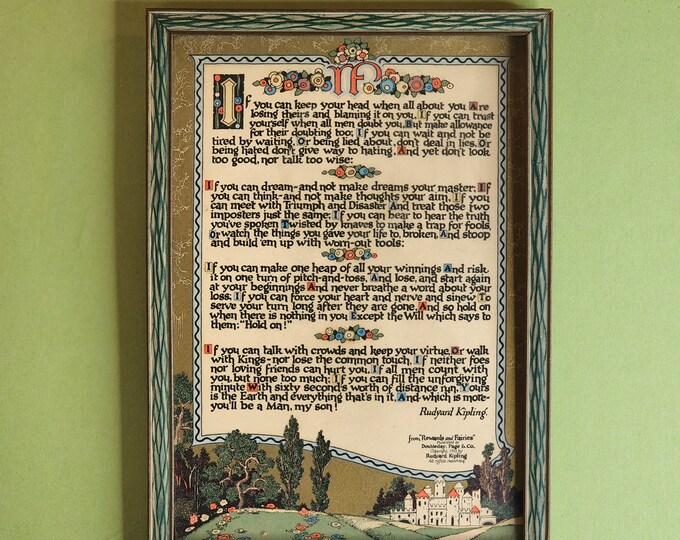 IF
If you can keep your head when all about you Are
losing theirs and blaming it on you, If you can trust
yourself when all men doubt you, But make allowance
for their doubting too; If you can wait and not be
tired by waiting, Or being lied about, don't deal in lies, Or
being hated don't give way to hating, And yet don't look
too good, nor talk too wise:
If you can dream-and not make dreams your master; If
you can think-and not make thoughts your aim, If you
can meet with Triumph and Disaster And treat those two
imposters just the same; If you can bear to hear the truth
you've spoken Twisted by knaves to make a trap for fools,
Or watch the things you gave your life to, broken, And stoop
and build 'em up with worn-out tools:
If you can make one heap of all your winnings And risk
it on one turn of pitch-and-toss, And lose, and start again
at your beginnings And never breathe a word about your
loss; If you can force your heart and nerve and sinew To
serve your turn long after they are gone, And so hold on
when there is nothing in you Except the Will which says to
them: "Hold on!"
If you can talk with crowds and keep your virtue, Or walk
with Kings-nor lose the common touch, If neither foes
nor loving friends can hurt you, If all men count with
you, but none too much; If you can fill the unforgiving
minute With sixty second's worth of distance run, Yours
is the Earth and everything that's in it, And-which is more-
you'll be a Man, my son!
Rudyard Kipling.
from "Rewards and Fairies"
Published by
Doubleday, Page & Co.
Copyright, 1910 by
Rudyard Kipling
All rights reserved